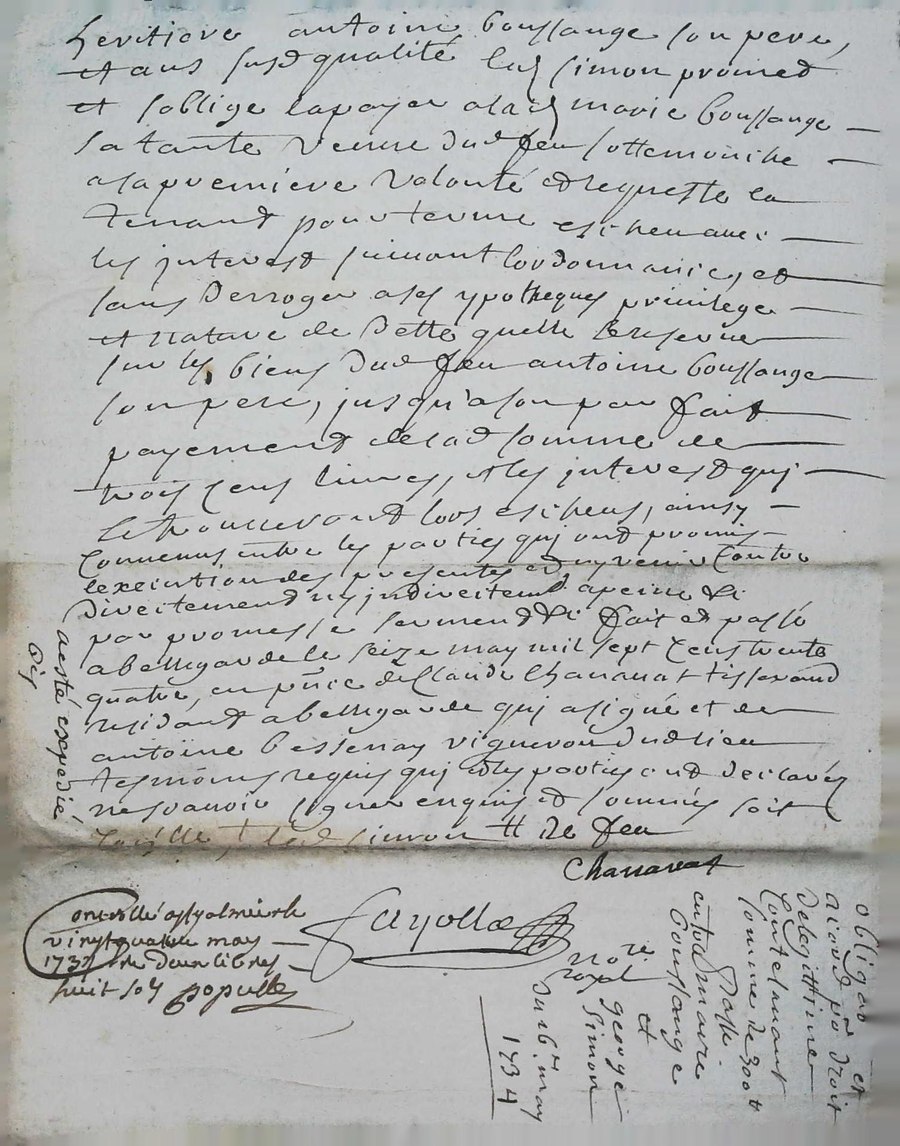 heritiere antoine Boussange son pere,
et aus susd qualité led simon promed
et soblige la payer a lad marie boussange
sa tante veuve dud feu sottemouche
a sa premiere volonté et requeste la
tenant pour terme escheu avec
les interest suivant lordonnance, et
sans derroger a ses ypotheques privilege
et nature de dette quelle se reserve
sur les biens dud feu antoine boussange
son pere, jusqu'a son par fait
payement de lad somme de
trois cens livres, et les interest quj
se trouveront lors escheus, ainsy
convenus entre les parties quj ont promis
lexecution des presentes et ny venir contre
directement ny indirectemt a peine &
par promesse serment & fait et passé
a bellegarde le seize may mil sept cens trente
quatre, en pnce de Claude Chanavat tisserand
residant a bellegarde quj a signé et de
antoine bessenay vigneron dud lieu
tesmoins requis quj et les parties ont declarés
ne scavoir signer enquis et sommés soit
led simon # de feu
Chanavat
a esté expedié
dis
controllé a st galmier le
vingt quatre may
1734 re deux livres
huit sols populle
fayolle
nore
royal
obligaon et
accord po droit
de legittime
contenant
somme de 300 #
passé
entre marie
boussange
et
george
simon
du 16e may
1734